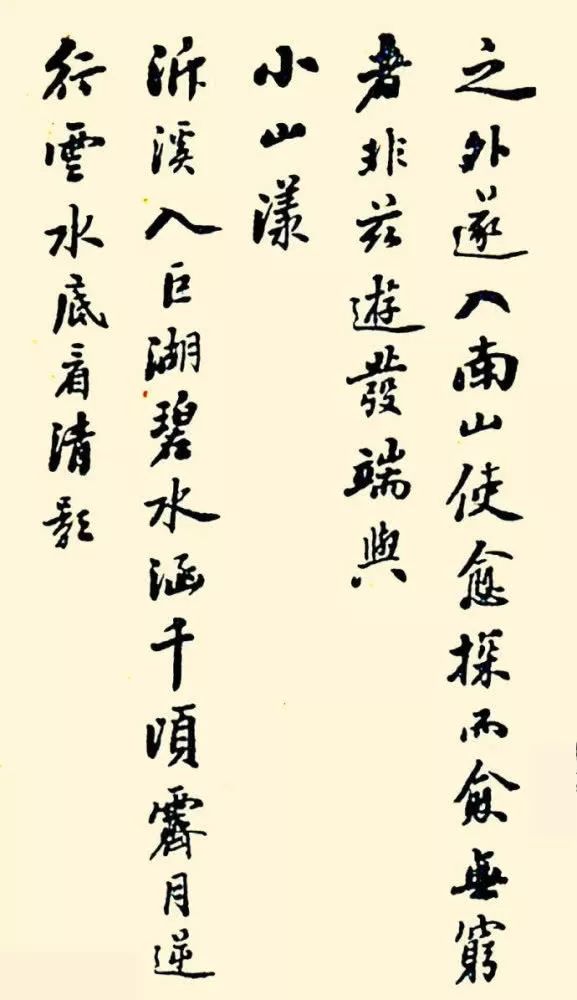 之外遂入南山使愈探而愈無窮
者非茲遊發端與
小山漾
泝溪入巨湖碧水涵千頃霽月逆
行雲水底看清影